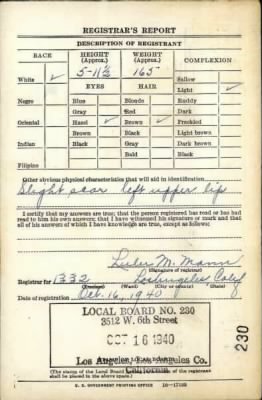 REGISTRAR'S REPORT
DESCRIPTION OF REGISTRANT
RACE HEIGHT (Approx.) WEIGHT (Approx.) COMPLEXION
5-11½ 165
White ✓ Sallow
EYES HAIR Light ✓
Negro Blue Blonde Ruddy
Gray Red Dark
Oriental Hazel ✓ Brown ✓ Freckled
Brown Black Light brown
Indian Black Gray Dark brown
Bald Black
Filipino
Other obvious physical characteristics that will aid in identification
Slight scar left upper lip
I certify that my answers are true; that the person registered has read or has had
read to him his own answers; that I have witnessed his signature or mark and that
all of his answers of which I have knowledge are true, except as follows:
M. Mann
(Signature of registrar)
Registrar for 1332 Los Angeles Calif
(Precinct) (Ward) (City or county) (State)
Date of registration Oct. 16, 1940
LOCAL BOARD NO. 230
3512 W. 6th Street
OCT 16 1940
230
Los Angeles, Los Angeles Co.
California
(The stamp of the Local Board of the registrant
shall be placed in the above space)
U. S. GOVERNMENT PRINTING OFFICE 16—17105